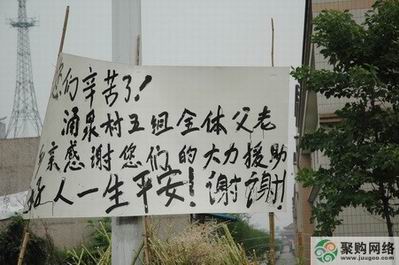 您们辛苦了!
涌泉村五组全体父老
乡亲感谢您们的大力援助
好人一生平安!谢谢!
聚购网络
www.juugoo.com